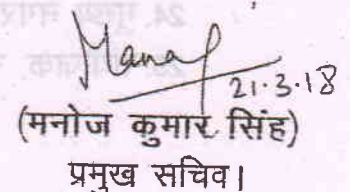 Manoj
21.3.18
(मनोज कुमार सिंह)
प्रमुख सचिव।